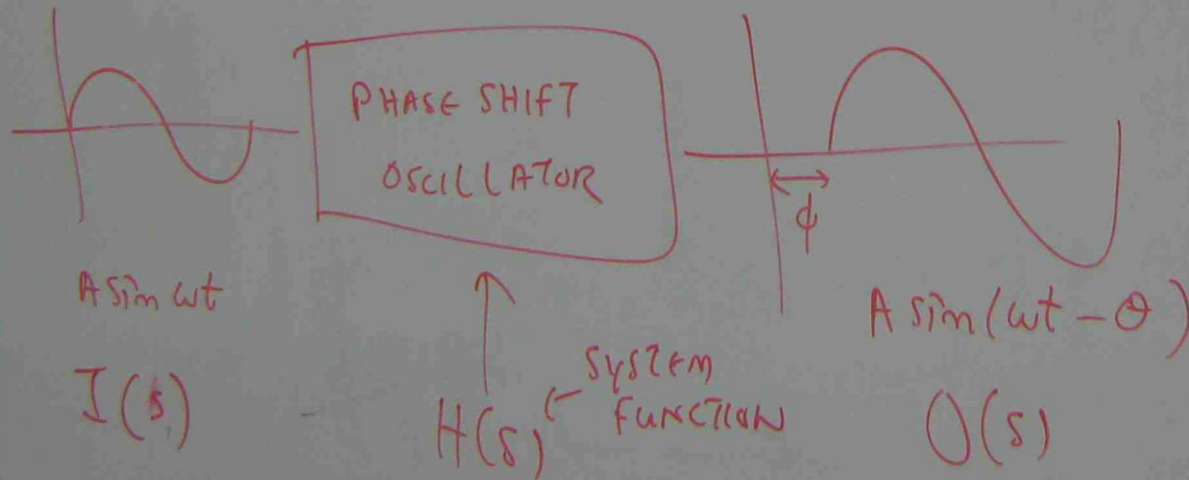 PHASE SHIFT
OSCILLATOR
ϕ
A sin ωt
A sin(ωt - θ)
I(s)
H(s) ← SYSTEM
FUNCTION
O(s)